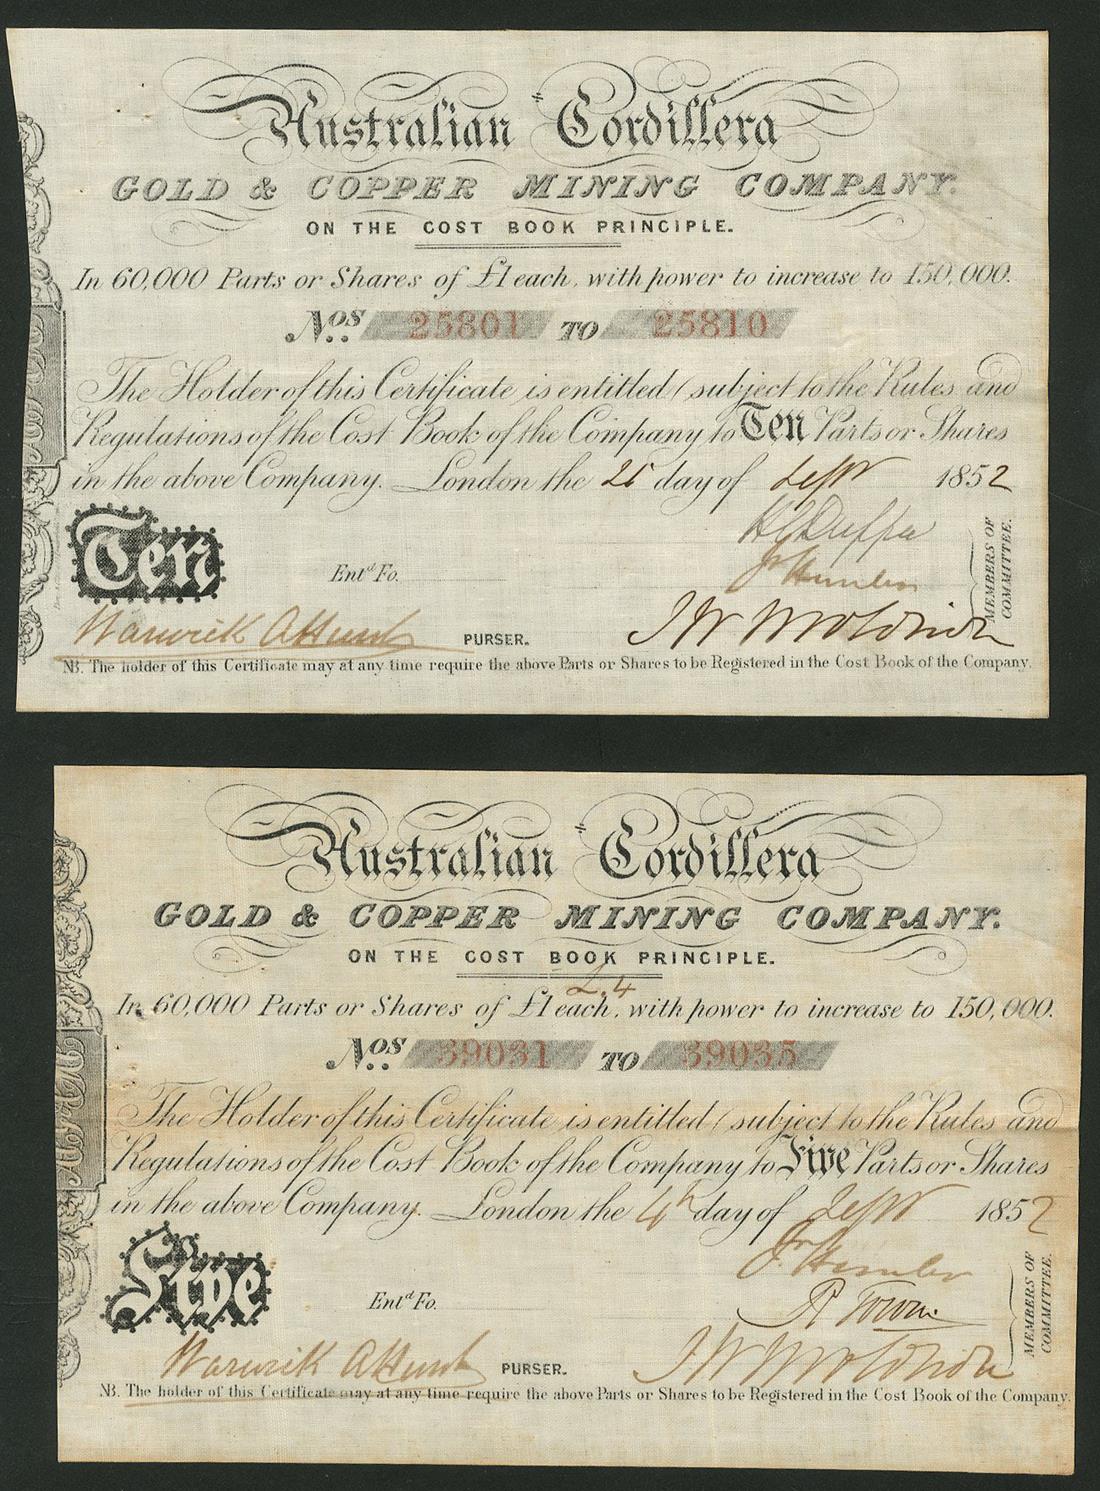 Australian Cordillera
GOLD & COPPER MINING COMPANY.
ON THE COST BOOK PRINCIPLE.
In 60,000 Parts or Shares of £1 each, with power to increase to 150,000.
Nos. 25801 TO 25810
The Holder of this Certificate is entitled (subject to the Rules and
Regulations of the Cost Book of the Company to Ten Parts or Shares
in the above Company. London the 25 day of Sept 1852
Ten
Entd. Fo.
MEMBERS OF
COMMITTEE.
Warwick A Hunt PURSER.
NB. The holder of this Certificate may at any time require the above Parts or Shares to be Registered in the Cost Book of the Company.
Australian Cordillera
GOLD & COPPER MINING COMPANY.
ON THE COST BOOK PRINCIPLE.
In 60,000 Parts or Shares of £1 each, with power to increase to 150,000.
Nos. 39031 TO 39035
The Holder of this Certificate is entitled (subject to the Rules and
Regulations of the Cost Book of the Company to Five Parts or Shares
in the above Company. London the 4th day of Sept 1852
Five
Entd. Fo.
MEMBERS OF
COMMITTEE.
Warwick A Hunt PURSER.
NB. The holder of this Certificate may at any time require the above Parts or Shares to be Registered in the Cost Book of the Company.